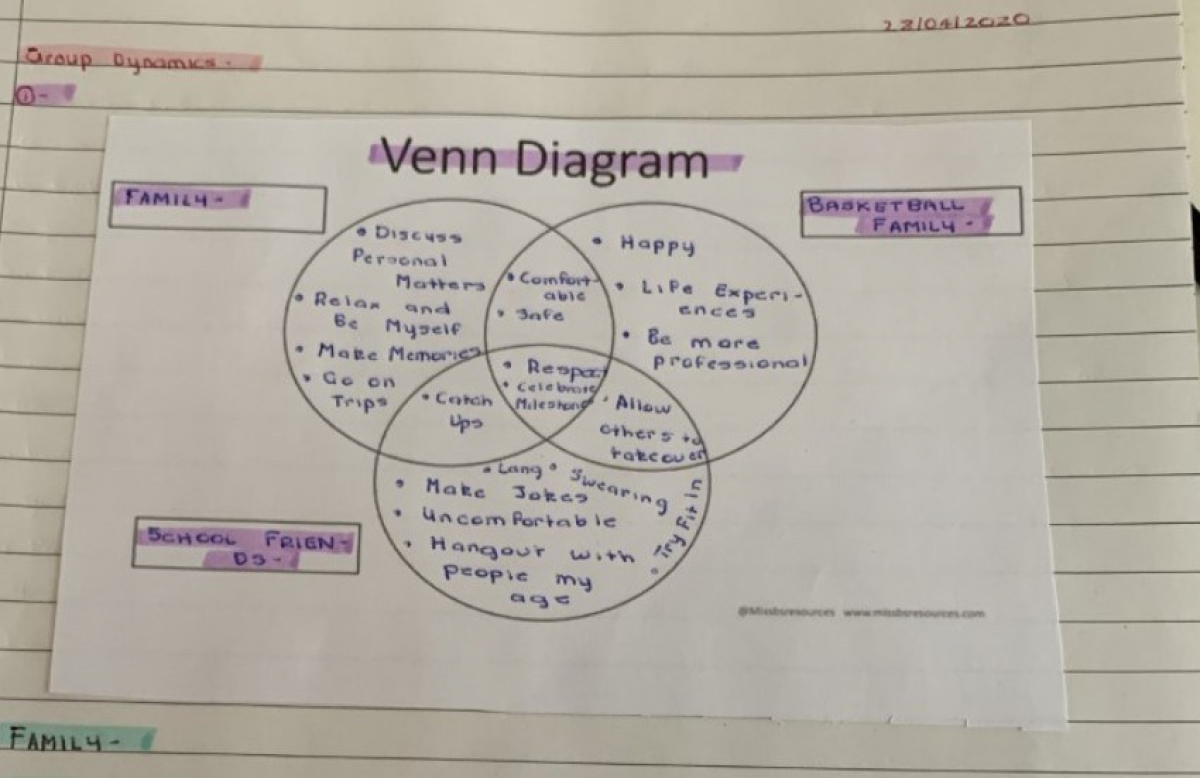 28/04/2020
Group Dynamics -
①-
Venn Diagram
FAMILY -
BASKETBALL
FAMILY -
• Discuss
Personal
Matters
• Relax and
Be Myself
• Make Memories
• Go on
Trips
• Comfort-
able
• Safe
• Happy
• Life Experi-
ences
• Be more
professional
• Respect
• Celebrate
Milestone
• Catch
Ups
• Allow
others to
takeover
• Lang • Swearing
• Make Jokes
• Uncomfortable
• Hangout with
people my
age
• Try Fit in
SCHOOL FRIEN-
DS -
@Missbsresources www.missbsresources.com
FAMILY -